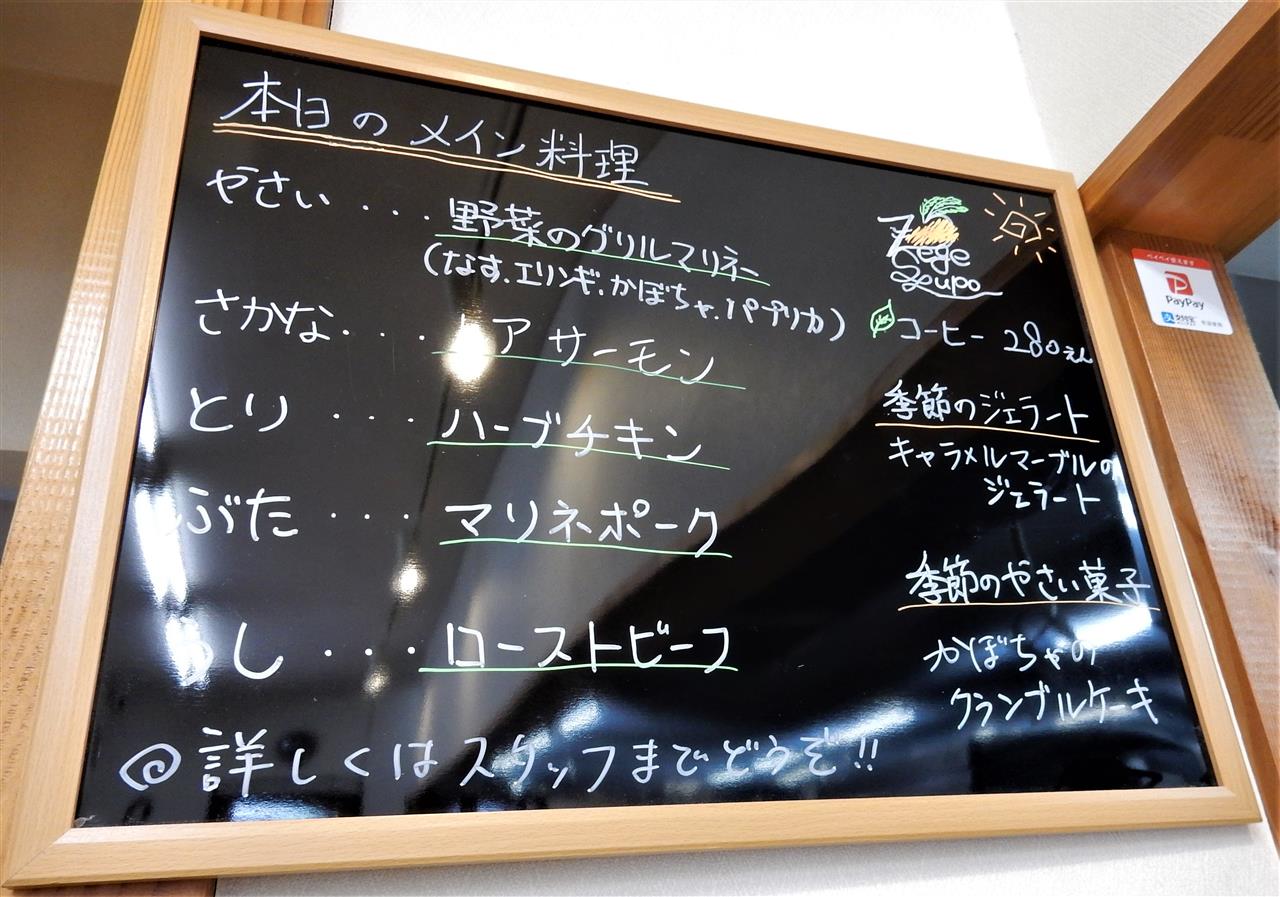 本日のメイン料理
やさい・・・野菜のグリルマリネー
(なす、エリンギ、かぼちゃ、パプリカ)
さかな・・・アサーモン
とり・・・ハーブチキン
ぶた・・・マリネポーク
うし・・・ローストビーフ
@詳しくはスタッフまでどうぞ!!
Vege
Zupo
コーヒー 280えん
季節のジェラート
キャラメルマーブルの
ジェラート
季節のやさい菓子
かぼちゃの
クランブルケーキ
PayPay